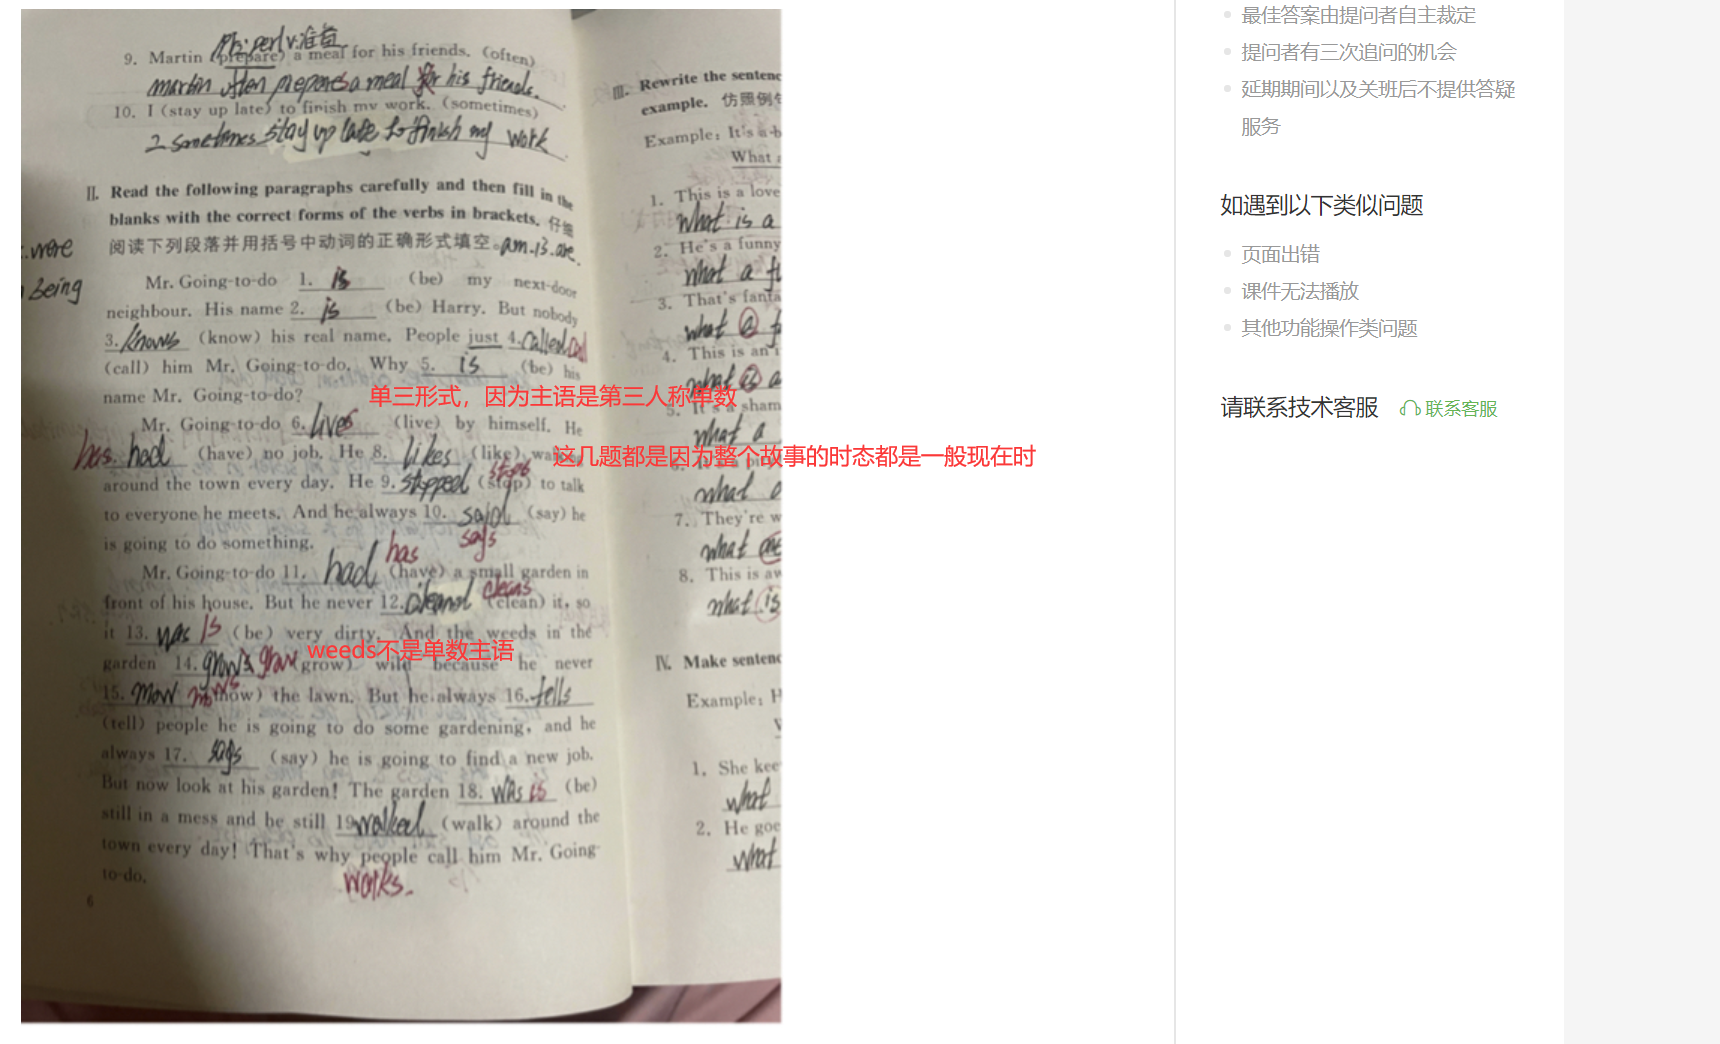 Pri:per/v.准备
9. Martin (prepare) a meal for his friends. (often)
martin often prepares a meal for his friends.
10. I (stay up late) to finish my work. (sometimes)
I sometimes stay up late to finish my work
II. Read the following paragraphs carefully and then fill in the
blanks with the correct forms of the verbs in brackets. 仔细
阅读下列段落并用括号中动词的正确形式填空。am.is.are.
were
being
Mr. Going-to-do 1. is (be) my next-door
neighbour. His name 2. is (be) Harry. But nobody
3. knows (know) his real name. People just 4. called
(call) him Mr. Going-to-do. Why 5. is (be) his
name Mr. Going-to-do?
单三形式，因为主语是第三人称单数
Mr. Going-to-do 6. lives (live) by himself. He
has. had (have) no job. He 8. likes (like)
这几题都是因为整个故事的时态都是一般现在时
around the town every day. He 9. stopped stops (stop) to talk
to everyone he meets. And he always 10. said (say) he
is going to do something. says
Mr. Going-to-do 11. had has (have) a small garden in
front of his house. But he never 12. cleaned cleans (clean) it, so
it 13. was is (be) very dirty. And the weeds in the
weeds不是单数主语
garden 14. grows grow (grow) wild because he never
15. mow mows (mow) the lawn. But he always 16. tells
(tell) people he is going to do some gardening, and he
always 17. says (say) he is going to find a new job.
But now look at his garden! The garden 18. was is (be)
still in a mess and he still 19. walked (walk) around the
town every day! That's why people call him Mr. Going-
to-do.
walks.
6
III. Rewrite the sentenc
example. 仿照例句
Example: It's a b
What a
1. This is a love
what is a
2. He's a funny
what a fu
3. That's fanta
what a f
4. This is an i
what is a
5. It's a sham
what a
what a
7. They're w
what are
8. This is aw
what is
IV. Make sentenc
Example: H
1. She kee
what
2. He goe
what
最佳答案由提问者自主裁定
提问者有三次追问的机会
延期期间以及关班后不提供答疑
服务
如遇到以下类似问题
页面出错
课件无法播放
其他功能操作类问题
请联系技术客服 联系客服